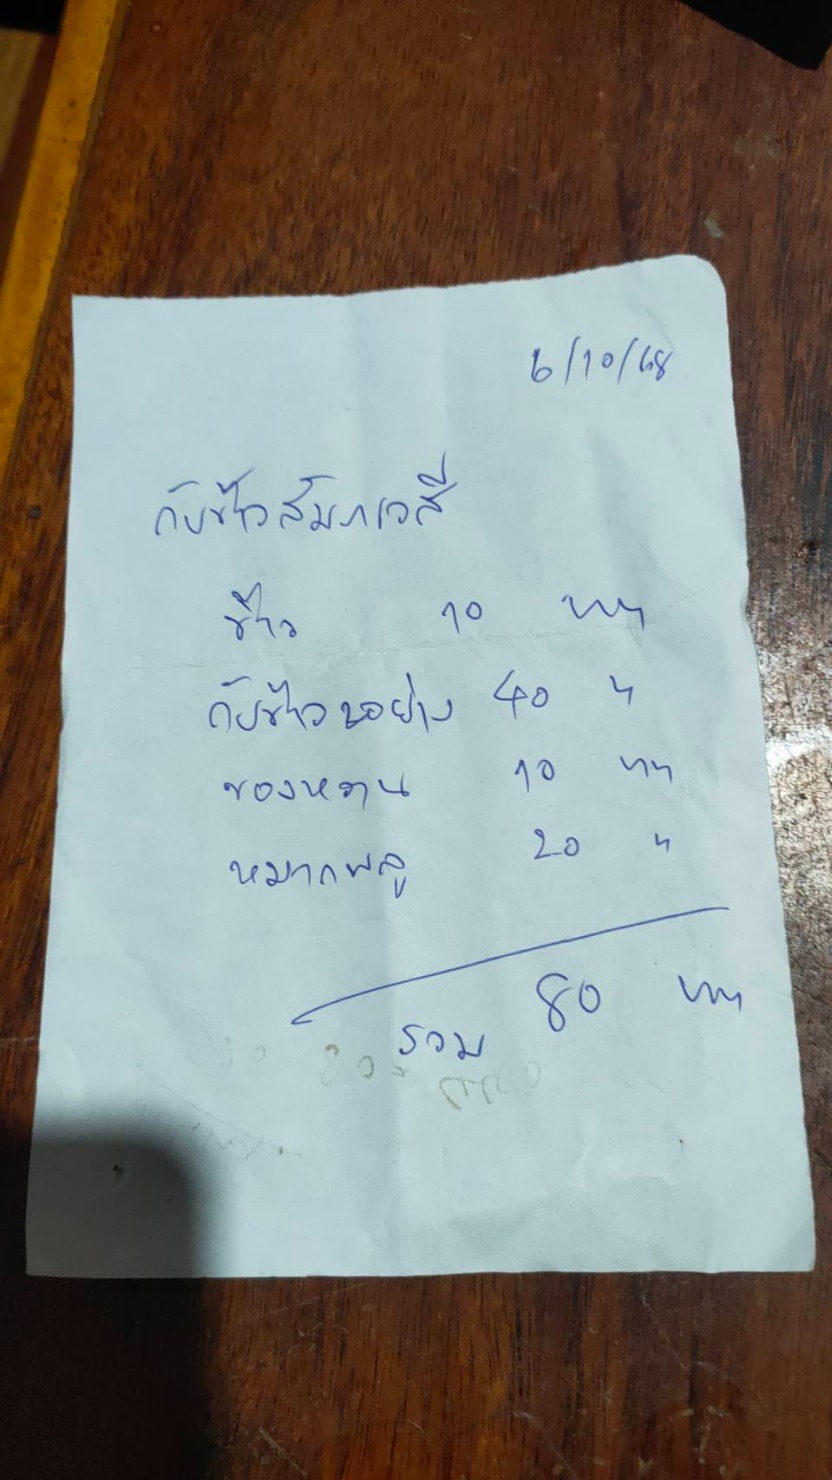 6/10/68
กับข้าวสัมภเวสี
ข้าว 10 บาท
กับข้าว 2 อย่าง 40 "
ของหวาน 10 บาท
หมากพลู 20 "
รวม 80 บาท